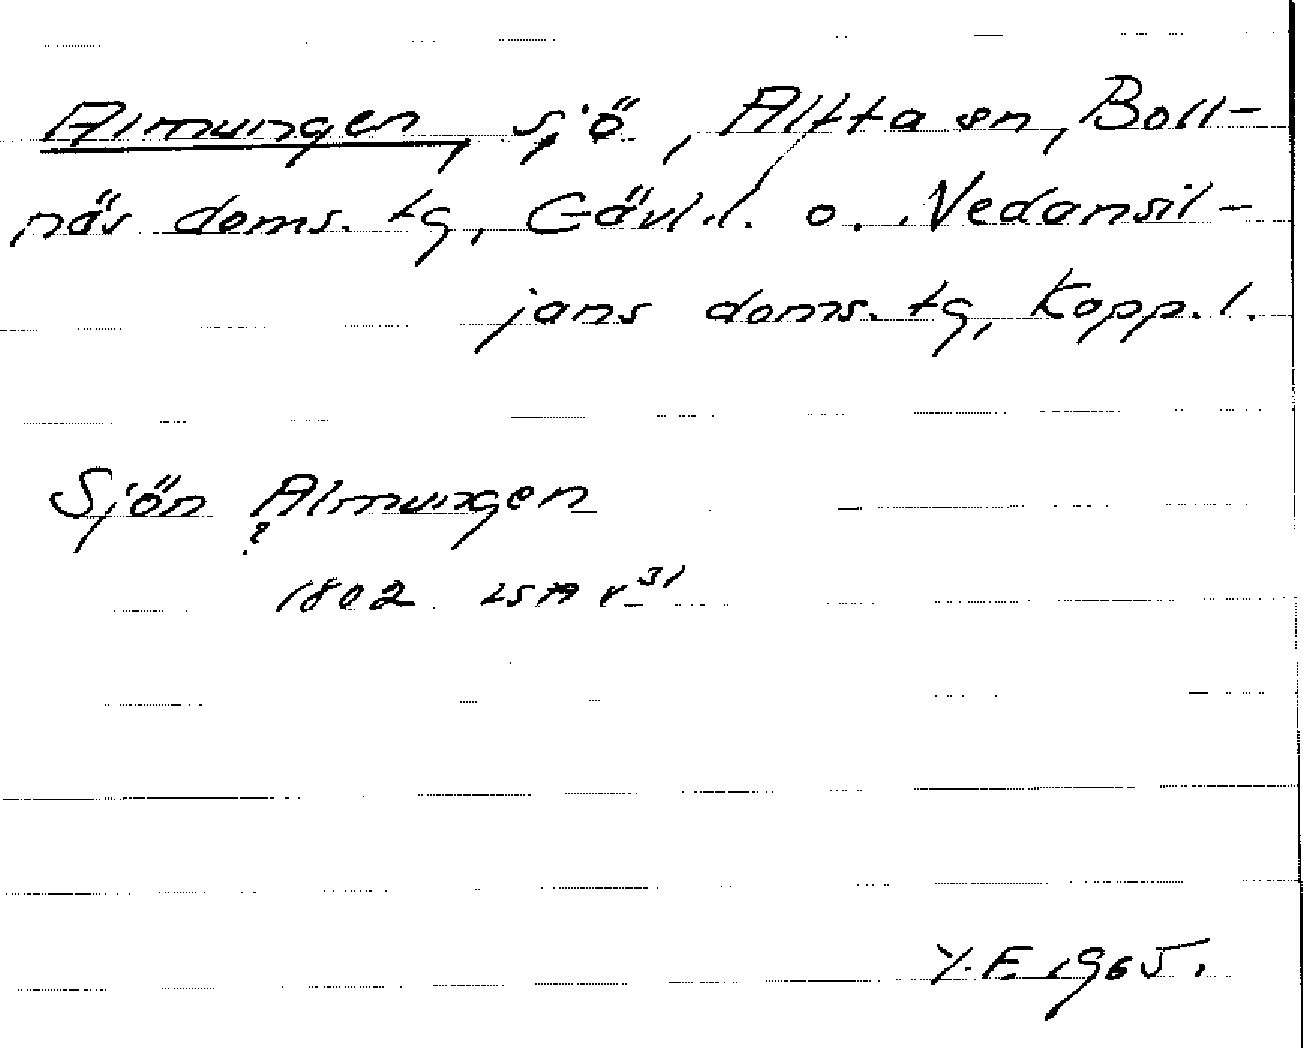 Almungen, sjö, Alfta sn, Boll-
näs doms. tg, Gävl.l. o. Nedansil-
jans doms. tg, Kopp. l.
Sjön Almungen
?
1802 LSA v 31
Y.E. 1965.